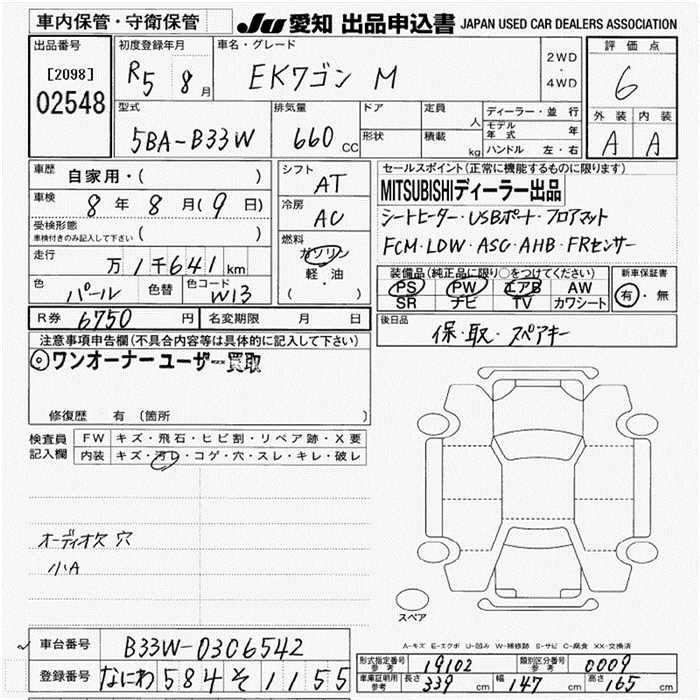 車内保管・守衛保管 JU 愛知 出品申込書 JAPAN USED CAR DEALERS ASSOCIATION
出品番号 初度登録年月 車名・グレード 評価点
[2098] R5 8月 EKワゴン M 2WD・4WD 6
02548
型式 排気量 ドア 定員 人 ディーラー・並行 外装 内装
5BA-B33W 660 CC 形状 積載 kg モデル年式 年 A A
ハンドル 左・右
車歴 自家用・( ) シフト AT セールスポイント(正常に機能するものに限ります)
車検 8年8月(9日) 冷房 AC MITSUBISHIディーラー出品
受検形態 ( ) シートヒーター・USBポート・フロアマット
車検付きのみ記入して下さい
走行 万1千641km 燃料 ガソリン FCM・LDW・ASC・AHB・FRセンサー
軽・油
( )
色 パール 色替 色コード W13 装備品(純正品に限り○をつけてください) 新車保証書
PS PW エアB AW 有・無
SR ナビ TV カワシート
R券 6750円 名変期限 月 日 後日品
保・取・スペアキー
注意事項申告欄(不具合内容等は具体的に記入して下さい)
◎ワンオーナー ユーザー買取
修復歴 有 (箇所
検査員記入欄 FW キズ・飛石・ヒビ割・リペア跡・X要
内装 キズ・汚レ・コゲ・穴・スレ・キレ・破レ
オーディオ欠 穴
小A
スペア
A-キズ E-エクボ U-凹み W-補修跡 S-サビ C-腐食 XX-交換済
車台番号 B33W-0306542
形式指定番号 参考 19102 類別区分番号 参考 0009
登録番号 なにわ 584 そ 1155
車庫証明用 参考 長さ 339 cm 幅 147 cm 高さ 165 cm